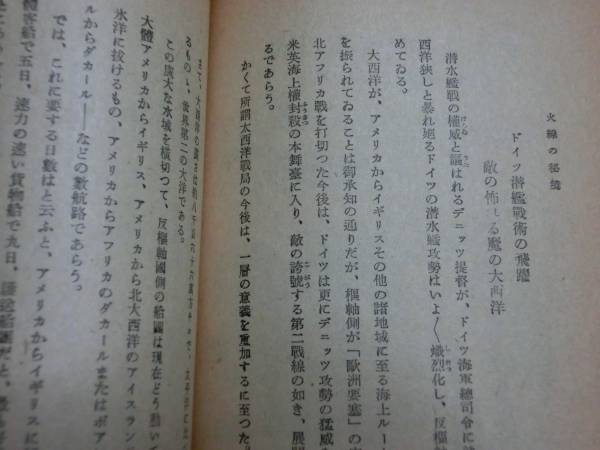 火線の秘鑰
ドイツ潜艦戰術の飛躍
敵の怖れる魔の大西洋
潜水艦戰の權威と謳はれるデニッツ提督が、ドイツ海軍總司令に
西洋狹しと暴れ廻るドイツの潜水艦攻勢はいよ〳〵熾烈化し、反樞
めてゐる。
大西洋が、アメリカからイギリスその他の諸地域に至る海上ルー
を振られてゐることは御承知の通りだが、樞軸側が「歐洲要塞」の
北アフリカ戰を打切つた今後は、ドイツは更にデニッツ攻勢の猛威
米英海上權封殺の本舞臺に入り、敵の誇號する第二戰線の如き、展
るであらう。
かくて所謂大西洋戰局の今後は、一層の意義を重加するに至つた
さて、大西洋の廣さは
るもの、世界第二の大洋である。
この厖大な水域を横切つて、反樞軸國側の船團は現在どう動いて
大體アメリカからイギリス、アメリカから北大西洋のアイスラン
氷洋に拔けるもの、アメリカからアフリカのダカールまたはボア
ルからダカール――などの數航路であらう。
では、これに要する日數はと云ふと、アメリカからイギリスに
客船で五日、速力の速い貨物船で九日、